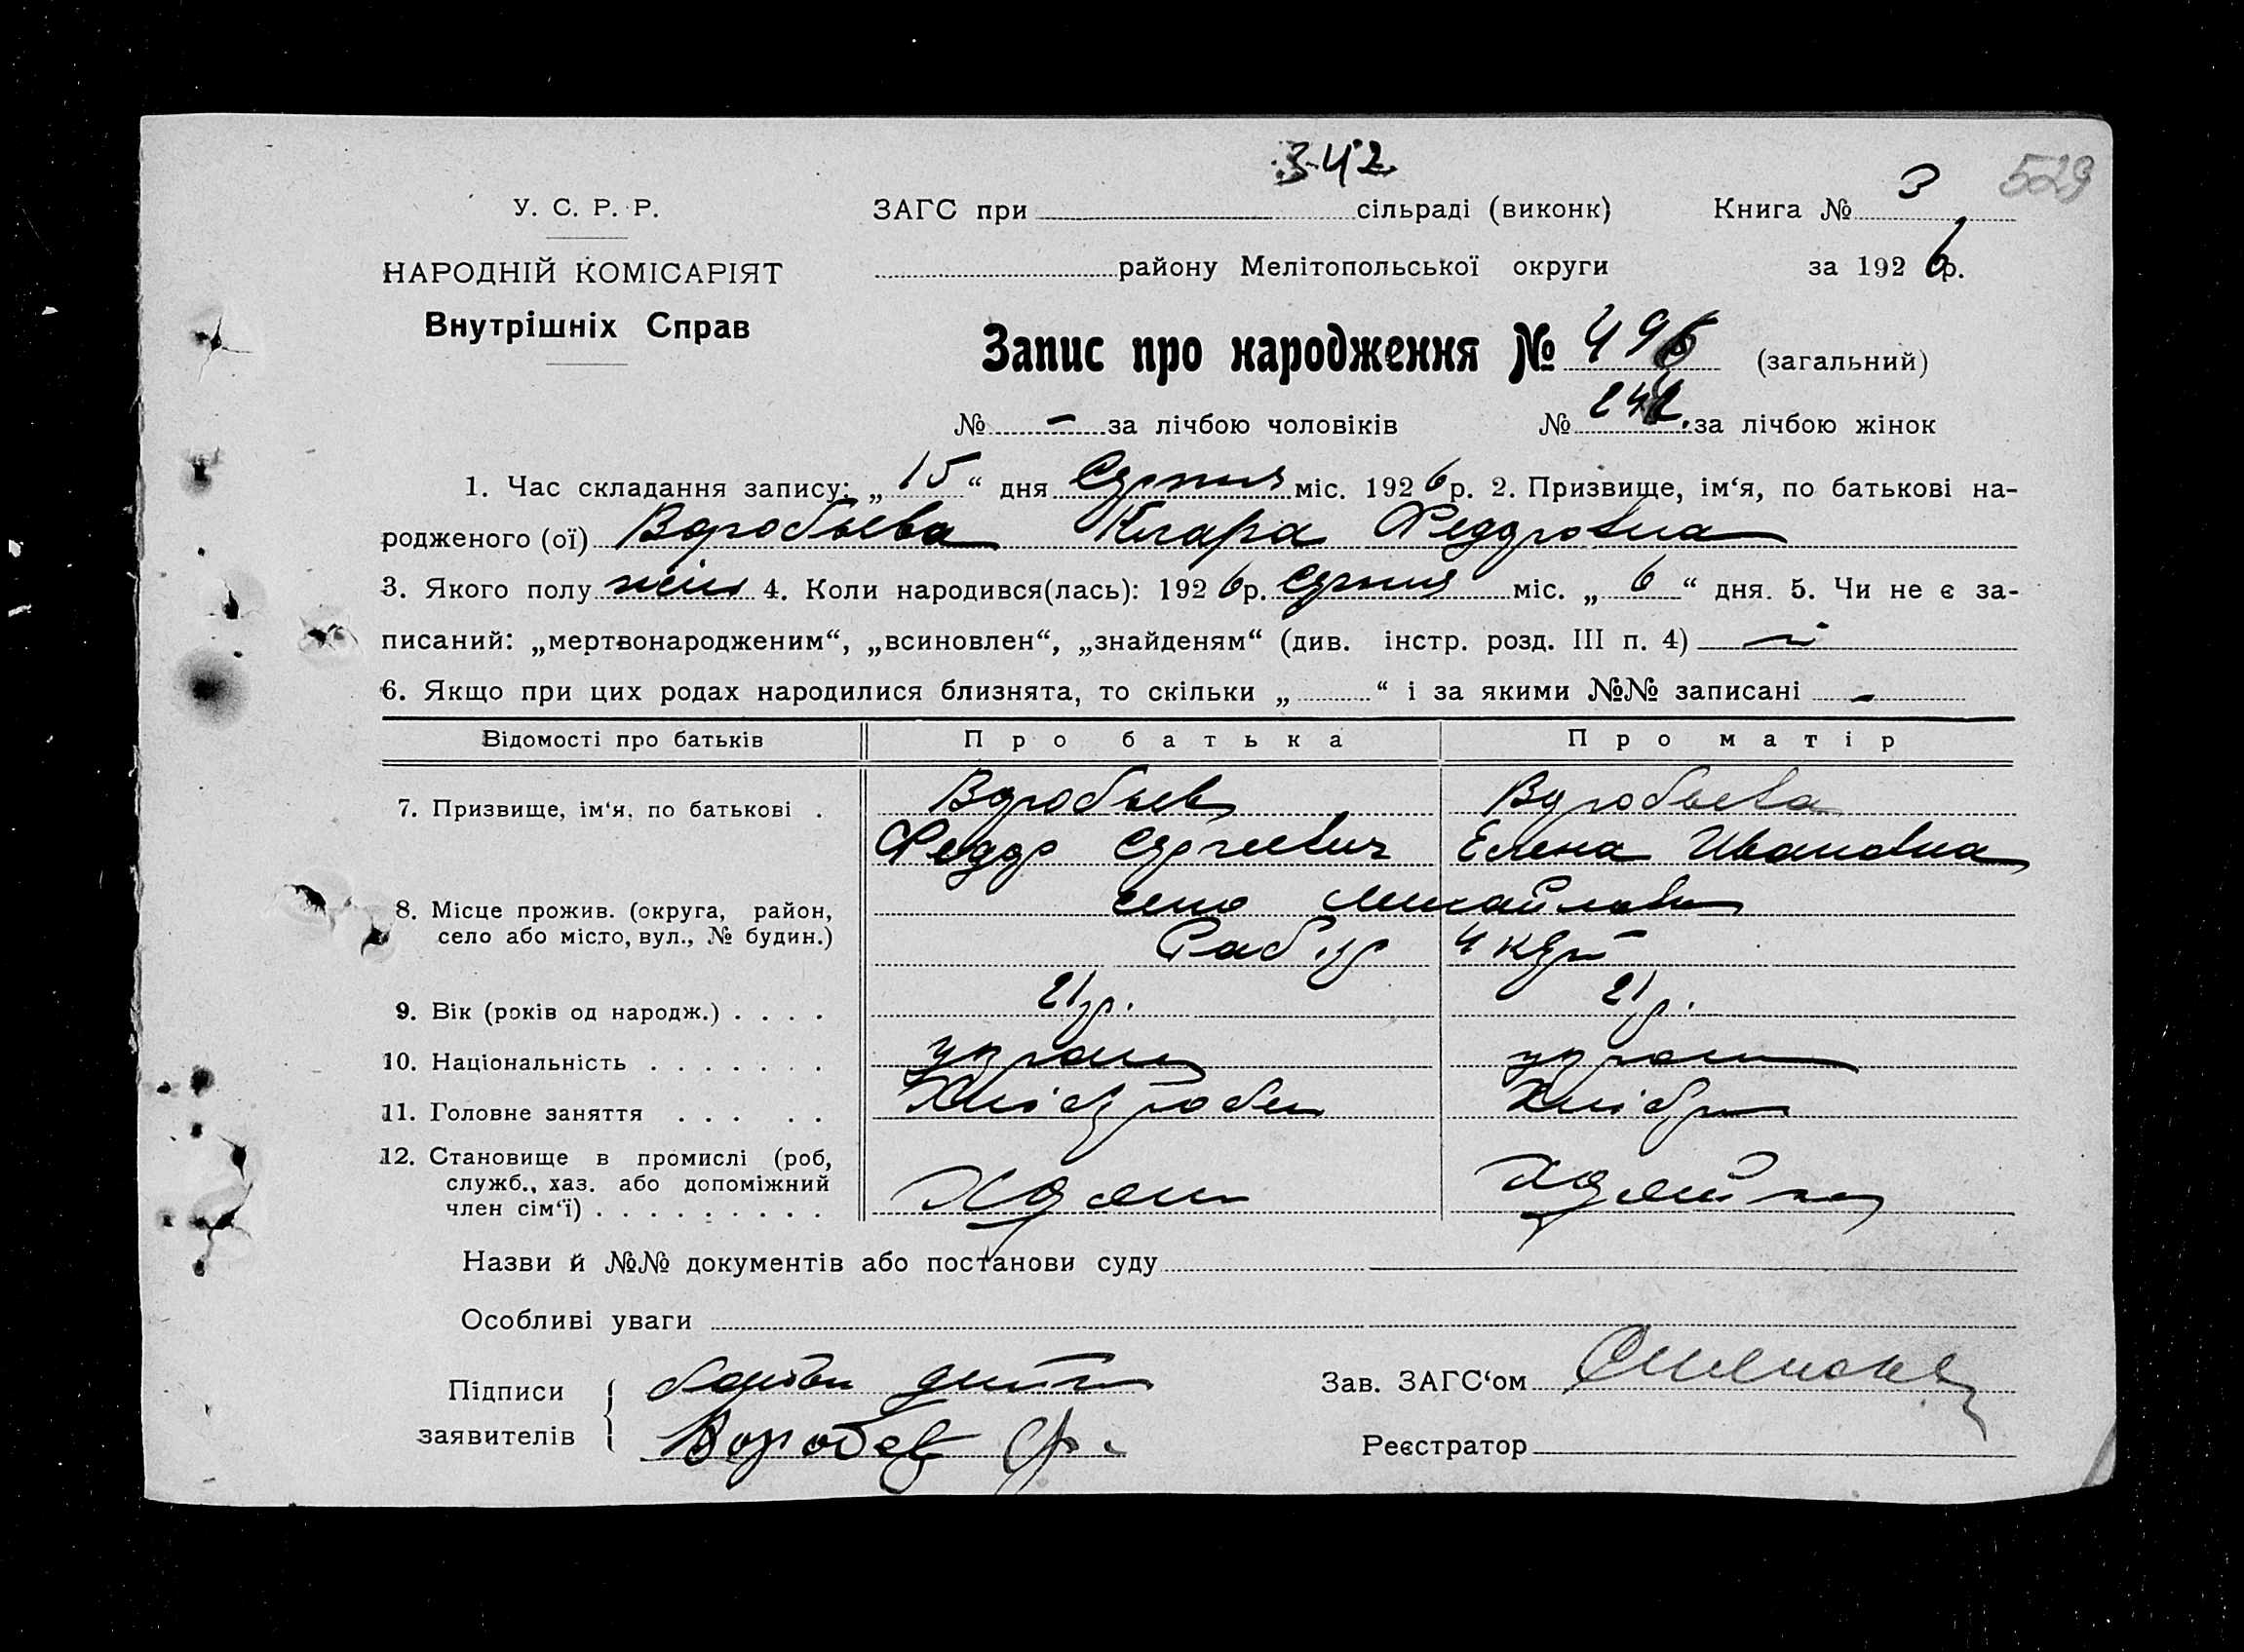 342
529
У. С. Р. Р.
ЗАГС при сільраді (виконк) Книга № 3
НАРОДНІЙ КОМІСАРІЯТ
району Мелітопольської округи за 1926р.
Внутрішніх Справ
Запис про народження № 496 (загальний)
№ - за лічбою чоловіків № 242. за лічбою жінок
1. Час складання запису: „15“ дня Серпня міс. 1926р. 2. Призвище, ім‘я, по батькові на-
родженого (ої) Воробьева Клара Феддровна
3. Якого полу жін 4. Коли народився(лась): 1926р. Серпня міс. „6“ дня. 5. Чи не є за-
писаний: „мертвонародженим“, „всиновлен“, „знайденям“ (див. інстр. розд. III п. 4)
6. Якщо при цих родах народилися близнята, то скільки „ “ і за якими №№ записані -
Відомості про батьків Про батька Про матір
7. Призвище, ім‘я, по батькові . Воробьев Воробьева
Феддр Сергеевич Елена Ивановна
8. Місце прожив. (округа, район, село Михайловка
село або місто, вул., № будин.) 4
9. Вік (років од народж.) . . . . 21 р. 21 р.
10. Національність . . . . . . . украин украин
11. Головне заняття . . . . . Хліборобс Хлібор
12. Становище в промислі (роб,
служб., хаз. або допоміжний
член сім‘ї) . . . . . . . . . Хозяин Хозяйка
Назви й №№ документів або постанови суду
Особливі уваги
Підписи Зав. ЗАГС‘ом
заявителів Воробев Ф. Реєстратор